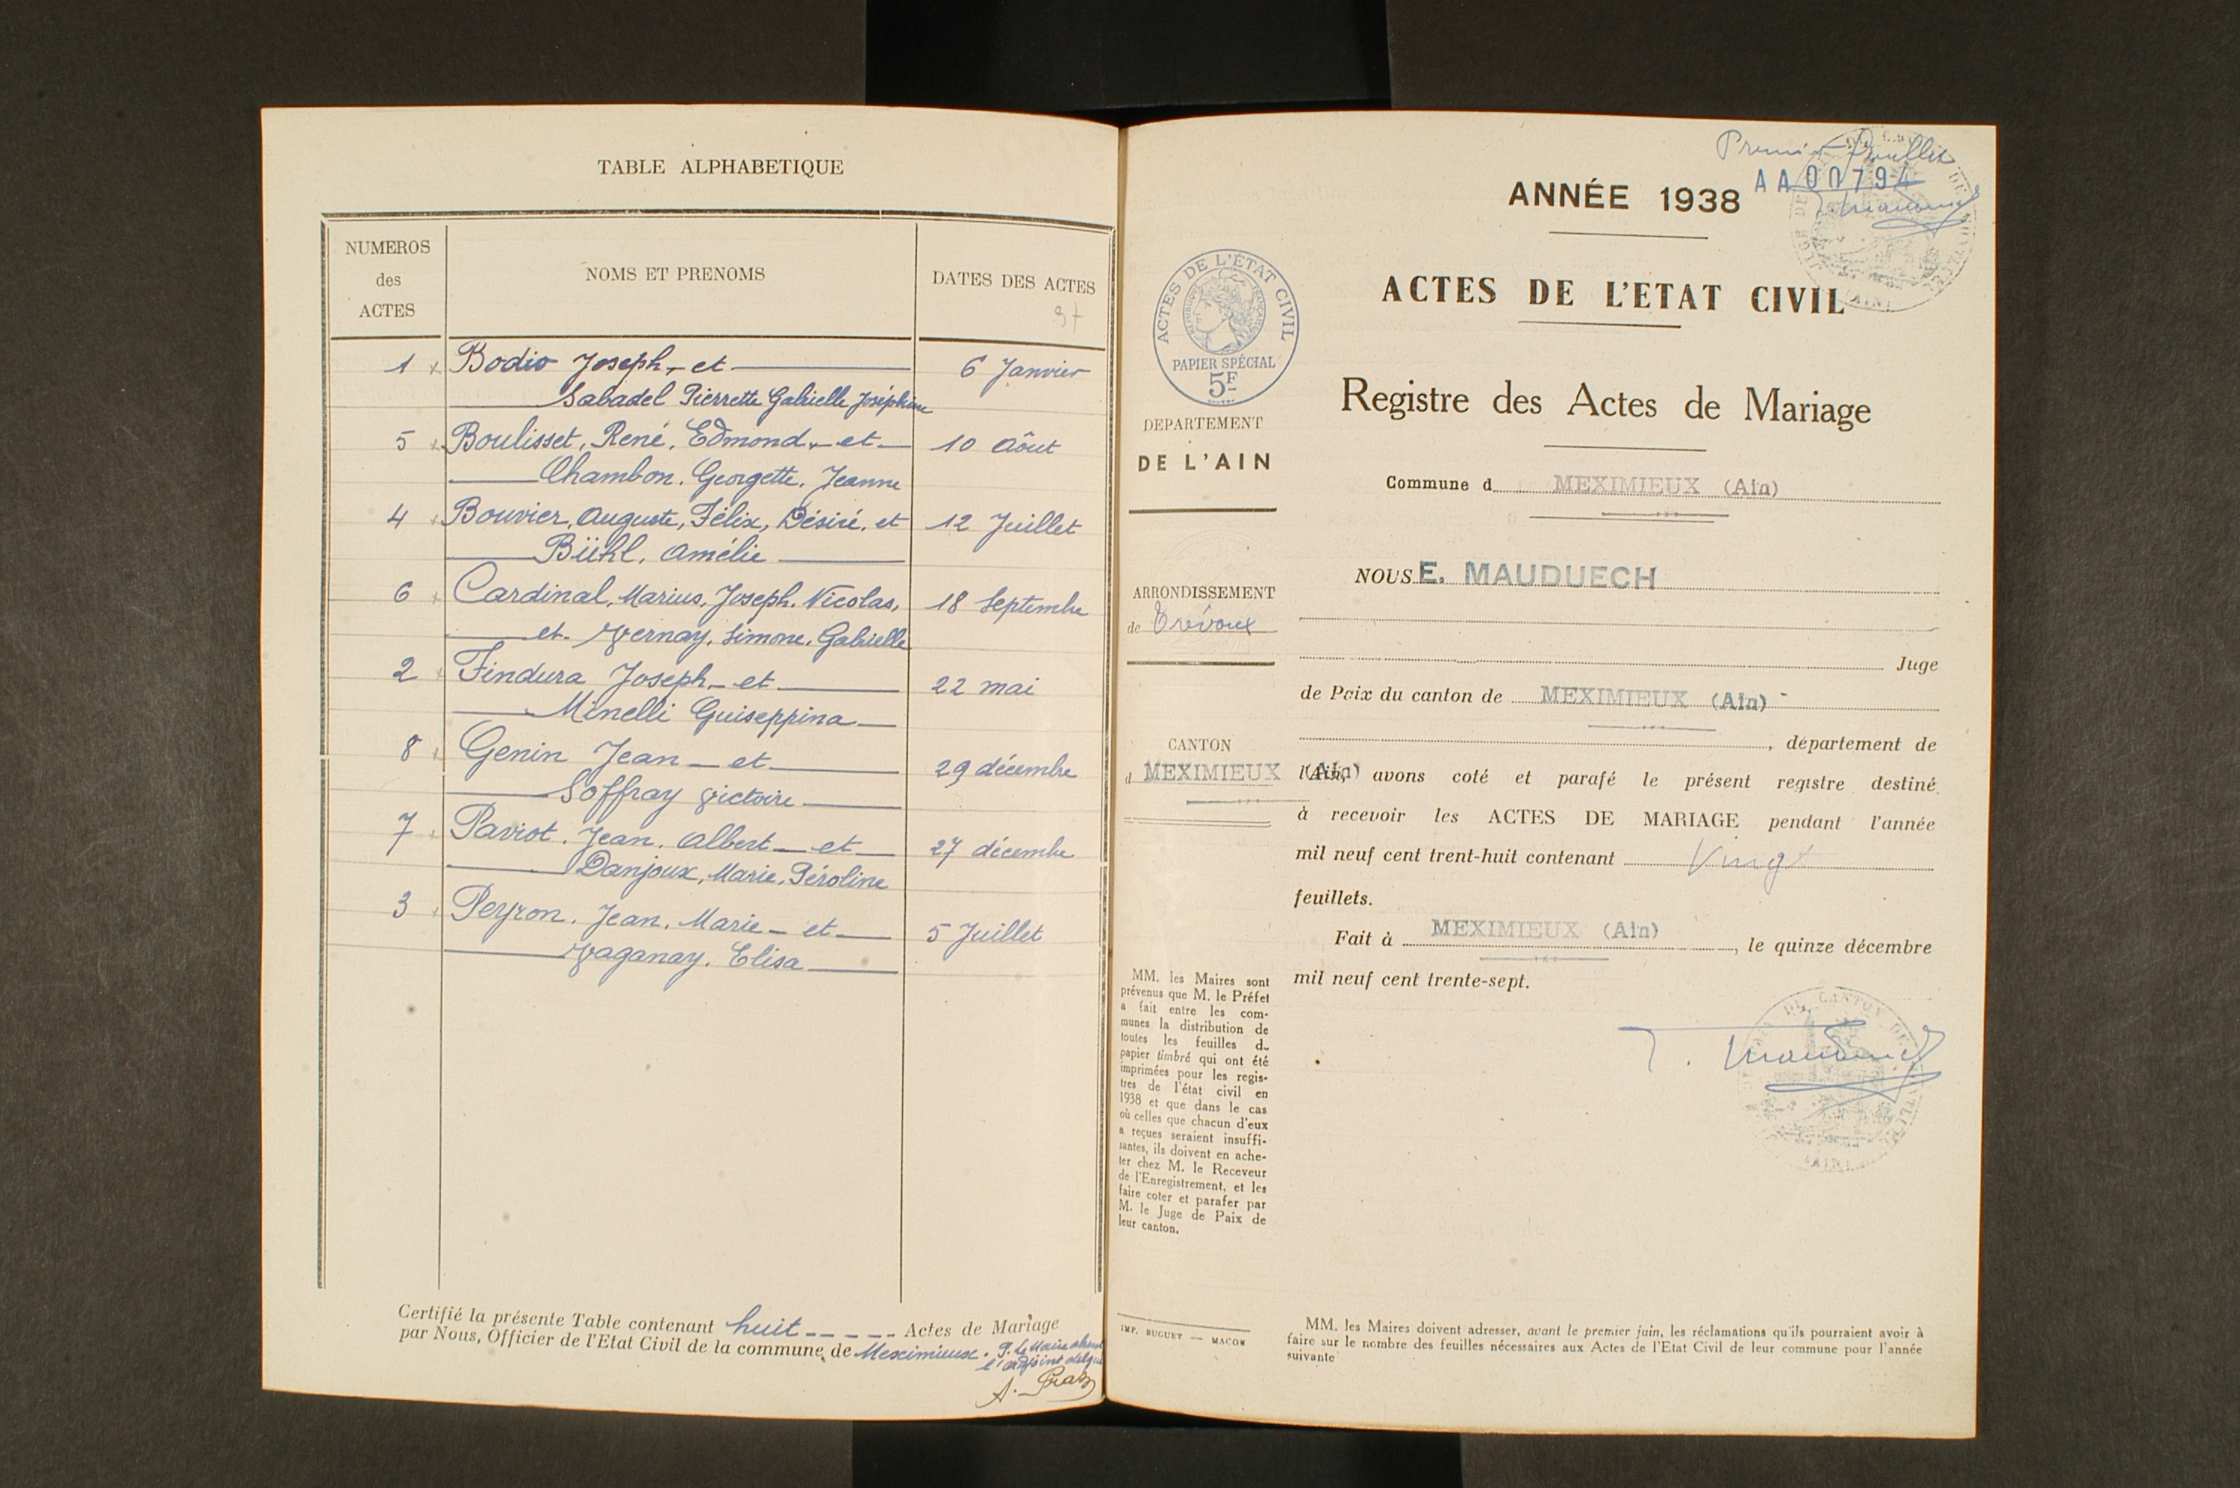 TABLE ALPHABETIQUE
NUMEROS
des
ACTES
NOMS ET PRENOMS
DATES DES ACTES
37
1 Bodio Joseph, et 6 Janvier
Sabadel Pierrette Gabrielle Joséphine
5 Boulisset, René, Edmond, et 10 Aôut
Chambon, Georgette, Jeanne
4 Bouvier, Auguste, Félix, Désiré, et 12 Juillet
Bühl, Amélie
6 Cardinal, Marius, Joseph, Nicolas, 18 Septembre
et Vernay, Simone, Gabrielle
2 Findura Joseph et 22 mai
Minelli Guiseppina
8 Genin Jean et 29 décembre
Soffray Victoire
7 Paviot, Jean, Albert et 27 décembre
Danjoux, Marie, Péroline
3 Peyron, Jean, Marie et 5 Juillet
Vaganay, Elisa
Certifié la présente Table contenant huit Actes de Mariage
par Nous, Officier de l'Etat Civil de la commune de Meximieux. P. Le Maire absent
l'adjoint délégué
Premier feuillet
AA00794
ANNÉE 1938
ACTES DE L'ETAT CIVIL
Registre des Actes de Mariage
Commune d MEXIMIEUX (Ain)
ACTES DE L'ÉTAT CIVIL
PAPIER SPÉCIAL
5F
DEPARTEMENT
DE L'AIN
ARRONDISSEMENT
de Trévoux
CANTON
d MEXIMIEUX (Ain)
NOUS E. MAUDUECH
Juge
de Paix du canton de MEXIMIEUX (Ain)
, département de
l'Ain, avons coté et parafé le présent registre destiné
à recevoir les ACTES DE MARIAGE pendant l'année
mil neuf cent trent-huit contenant Vingt
feuillets.
Fait à MEXIMIEUX (Ain), le quinze décembre
mil neuf cent trente-sept.
MM. les Maires sont
prévenus que M. le Préfet
a fait entre les com-
munes la distribution de
toutes les feuilles d
papier timbré qui ont été
imprimées pour les regis-
tres de l'état civil en
1938 et que dans le cas
où celles que chacun d'eux
a reçues seraient insuffi-
santes, ils doivent en ache-
ter chez M. le Receveur
de l'Enregistrement, et les
faire coter et parafer par
M. le Juge de Paix de
leur canton.
IMP. BUGUET — MACON
MM. les Maires doivent adresser, avant le premier juin, les réclamations qu'ils pourraient avoir à
faire sur le nombre des feuilles nécessaires aux Actes de l'Etat Civil de leur commune pour l'année
suivante